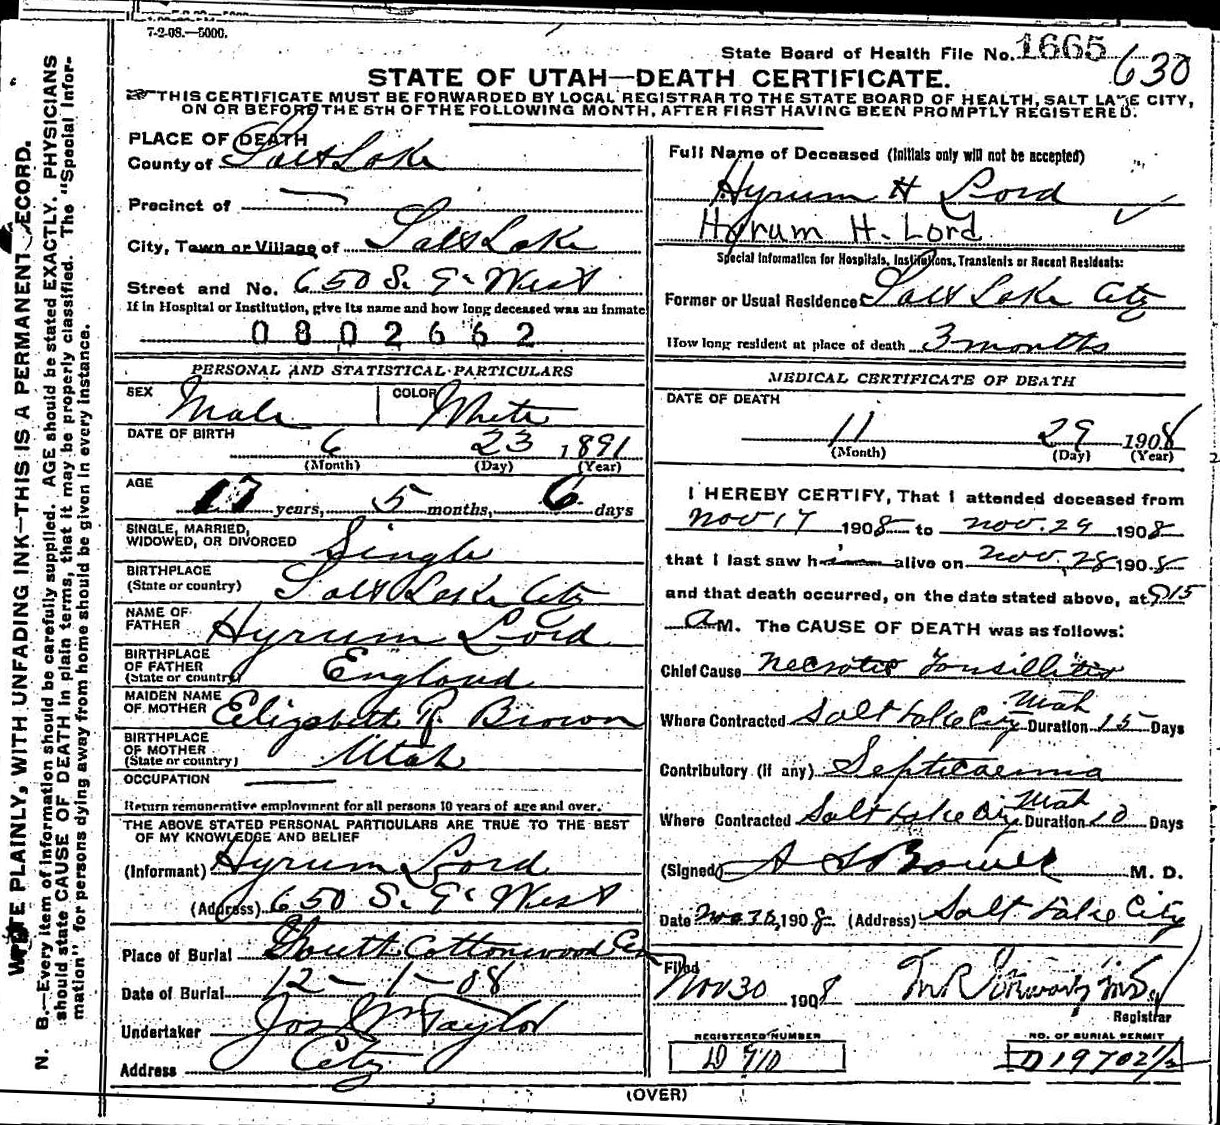 7-2-08.—5000.
State Board of Health File No. 1665
630
STATE OF UTAH—DEATH CERTIFICATE.
THIS CERTIFICATE MUST BE FORWARDED BY LOCAL REGISTRAR TO THE STATE BOARD OF HEALTH, SALT LAKE CITY,
ON OR BEFORE THE 5TH OF THE FOLLOWING MONTH, AFTER FIRST HAVING BEEN PROMPTLY REGISTERED.
WRITE PLAINLY, WITH UNFADING INK—THIS IS A PERMANENT RECORD.
N. B.—Every item of information should be carefully supplied. AGE should be stated EXACTLY. PHYSICIANS
should state CAUSE OF DEATH in plain terms, that it may be properly classified. The "Special Infor-
mation" for persons dying away from home should be given in every instance.
PLACE OF DEATH
County of Salt Lake
Precinct of —
City, Town or Village of Salt Lake
Street and No. 650 S. 9th West
If in Hospital or Institution, give its name and how long deceased was an inmate
0802662
PERSONAL AND STATISTICAL PARTICULARS
SEX Male COLOR White
DATE OF BIRTH 6 23 1891
(Month) (Day) (Year)
AGE 17 years, 5 months, 6 days
SINGLE, MARRIED,
WIDOWED, OR DIVORCED Single
BIRTHPLACE
(State or country) Salt Lake City
NAME OF
FATHER Hyrum Lord
BIRTHPLACE
OF FATHER
(State or country) England
MAIDEN NAME
OF MOTHER Elizabeth R. Brown
BIRTHPLACE
OF MOTHER
(State or country) Utah
OCCUPATION —
Return remunerative employment for all persons 10 years of age and over.
THE ABOVE STATED PERSONAL PARTICULARS ARE TRUE TO THE BEST
OF MY KNOWLEDGE AND BELIEF
(Informant) Hyrum Lord
(Address) 650 S. 9th West
Place of Burial South Cottonwood Cem
Date of Burial 12-1-08
Undertaker Jos Wm Taylor
Address City
Full Name of Deceased (Initials only will not be accepted)
Hyrum H Lord
Hyrum H. Lord
Special Information for Hospitals, Institutions, Transients or Recent Residents:
Former or Usual Residence Salt Lake City
How long resident at place of death 3 months
MEDICAL CERTIFICATE OF DEATH
DATE OF DEATH
11 29 1908
(Month) (Day) (Year)
I HEREBY CERTIFY, That I attended deceased from
Nov 17 1908 to Nov. 29 1908
that I last saw him alive on Nov. 28 1908
and that death occurred, on the date stated above, at 915
A M. The CAUSE OF DEATH was as follows:
Chief Cause Necrotic Tonsillitis
Where Contracted Salt Lake City Utah Duration 15 Days
Contributory (if any) Septicaemia
Where Contracted Salt Lake City Utah Duration 10 Days
(Signed) M. D.
Date 1908 (Address) Salt Lake City
Filed
Nov 30 1908
Registrar
REGISTERED NUMBER
D 910
NO. OF BURIAL PERMIT
D 19702 1/2
(OVER)